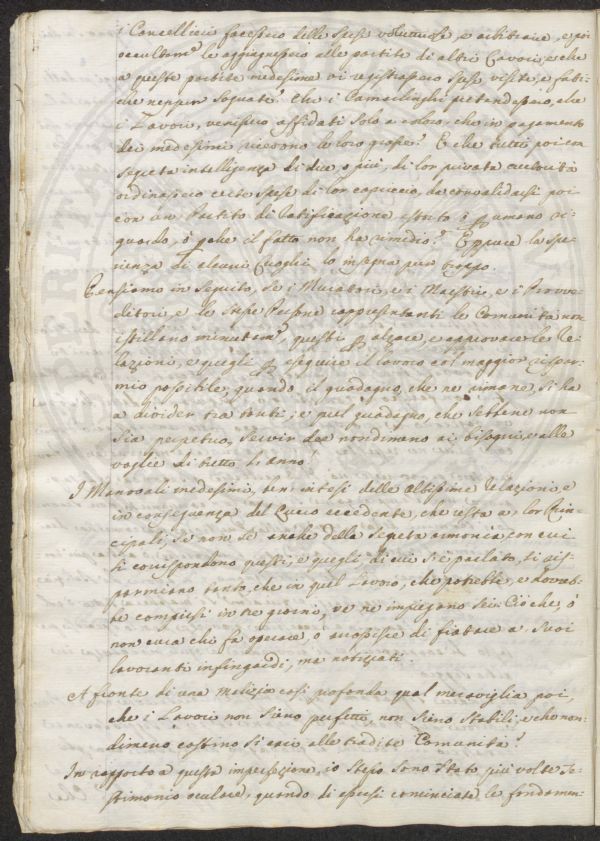 i Cancellieri facessero delle spese voluttuose, e arbitrarie, e poi
occultam.e le aggiugnessero alle partite di altri Lavori, e che
a queste partite medesime vi registrassero spese, visite, e fati-
che neppur sognate? Che i Camarlinghi pretendessero, che
i Lavori, venissero affidati solo a coloro, che in pagamento
dei medesimi ricevono le loro grasce? E che tutti poi con
segreta intelligenza di due, o più, di lor privata autorità
ordinassero certe spese di lor capriccio, da convalidarsi poi
con un Partito di Ratificazione estorto p umano ri-
guardo, o p che il fatto non ha rimedio? Eppure la spe-
rienza di alcuni Luoghi, lo insegna pur troppo.
Pensiamo in seguito, se i Muratori, e i Maestri, e i Provve-
ditori, e le stesse Persone rappresentanti le Comunità non
istillano minutam.e, questi p alzare, e approvare le Re-
lazioni, e quegli p eseguire il lavoro col maggior rispar-
mio possibile, quando il guadagno, che ne rimane, si ha
a divider tra tanti; e quel guadagno, che sebbene non
sia perpetuo, servir dee nondimeno ai bisogni, e alle
voglie di tutto l'anno!
I Manovali medesimi, ben intesi delle altissime Relazioni, e
in conseguenza del Lucro eccedente, che resta a lor Prin-
cipali, se non se anche della segreta armonia, con cui
si corrispondono questi, e quegli, di cui si è parlato, si ris-
parmiano tanto, che in quel Lavoro, che potrebbe, e dovreb-
be compirsi in tre giorni, ve ne impiegano sei: Ciò che, o
non cura chi fa operare, o arrossisce di fiatare a suoi
lavoranti infingardi, ma notiziati.
A fronte di una malizia così profonda qual meraviglia poi,
che i Lavori non sieno perfetti, non sieno stabili, e che non-
dimeno costino sì cari alle tradite Comunità?
In rapporto a questa imperfezione, io stesso sono stato più volte Te-
stimonio oculare, quando di essersi cominciate le fondamen-